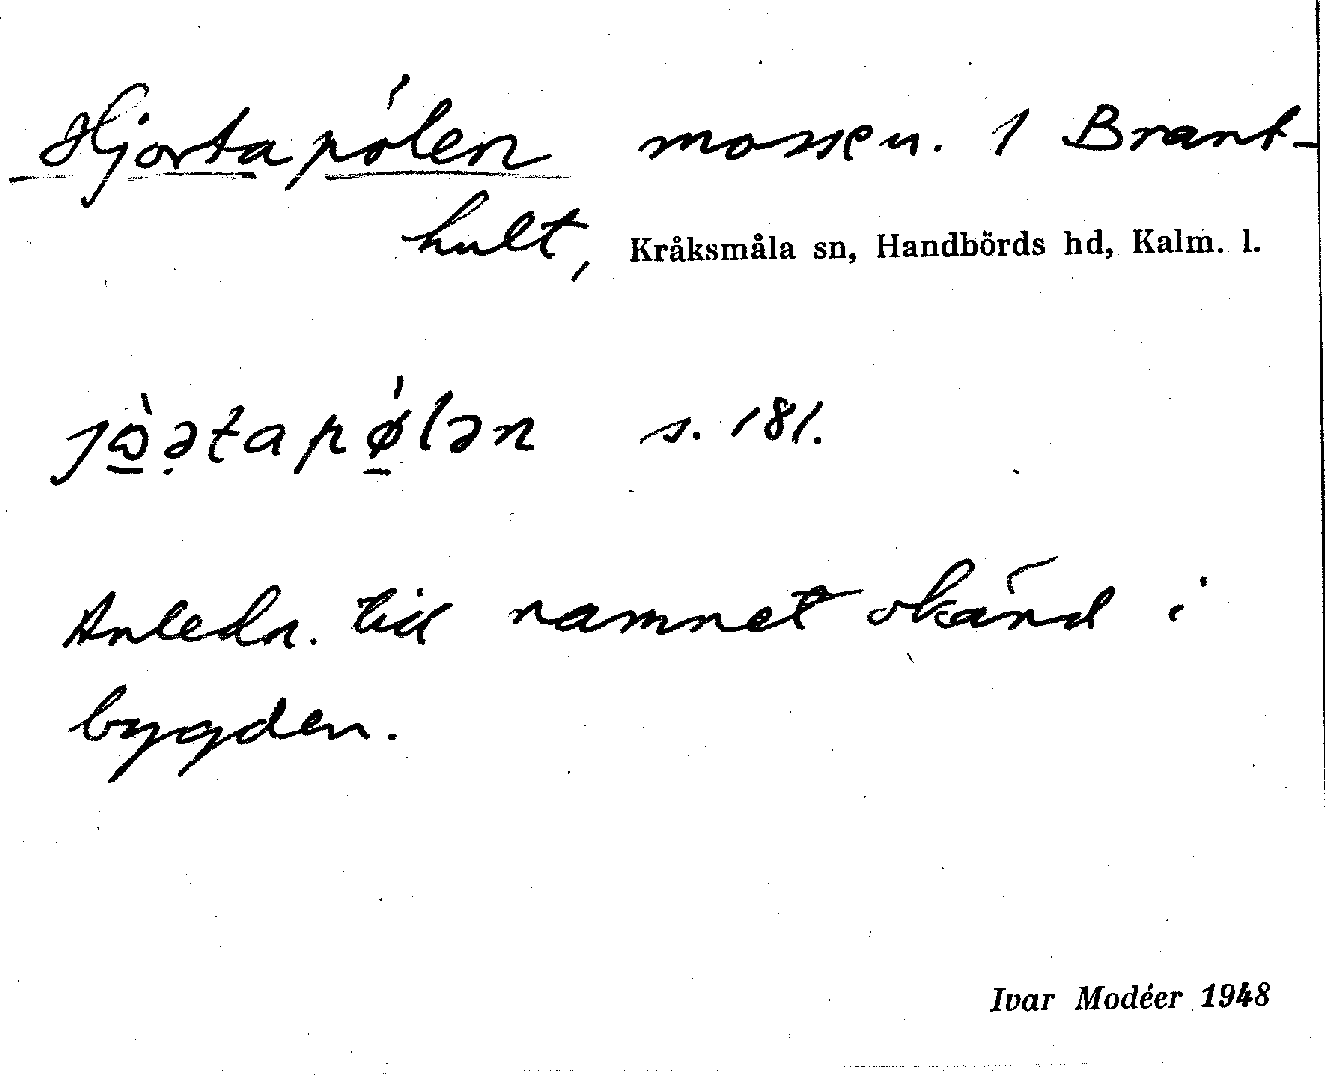 Hjortapölen mossen. 1 Brant-
hult, Kråksmåla sn, Handbörds hd, Kalm. l.
s. 181.
Anledn. till namnet okänd i
bygden.
Ivar Modéer 1948